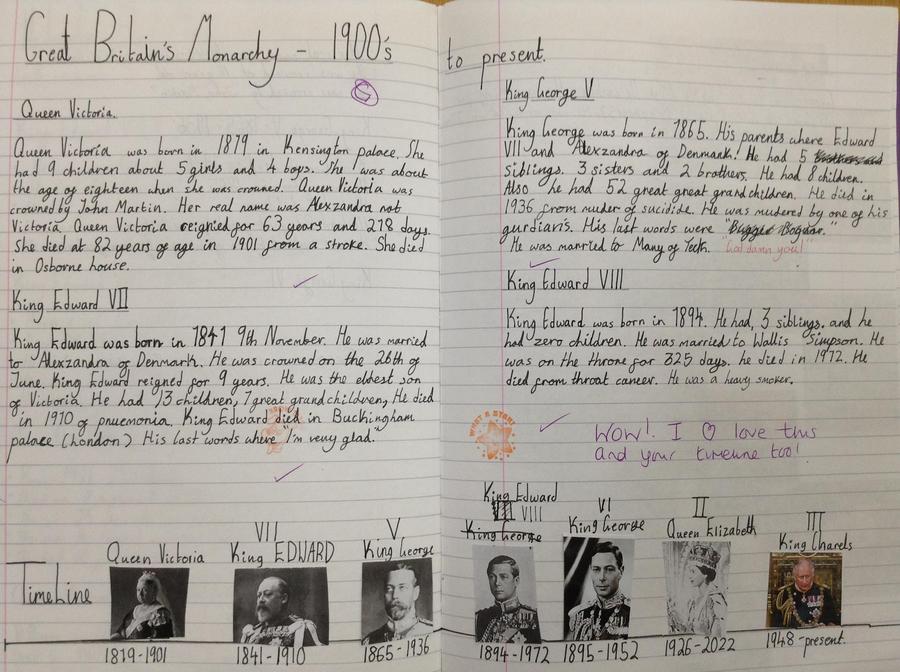 Great Britain's Monarchy - 1900's to present.
Queen Victoria.
Queen Victoria was born in 1819 in Kensington palace. She
had 9 children about 5 girls and 4 boys. She was about
the age of eighteen when she was crowned. Queen Victoria was
crowned by John Martin. Her real name was Alexzandra not
Victoria. Queen Victoria reignied for 63 years and 218 days.
She died at 82 years of age in 1901 from a stroke. She died
in Osborne house.
King Edward VII
King Edward was born in 1841 9th November. He was married
to Alexzandra of Denmark. He was crowned on the 26th of
June. King Edward reigned for 9 years. He was the eldest son
of Victoria. He had 13 children, 7 great grand children, He died
in 1910 of pnuemonia. King Edward died in Buckingham
palace (London) His last words where "I'm very glad."
King George V
King George was born in 1865. His parents where Edward
VII and Alexzandra of Denmark! He had 5
Siblings. 3 sisters and 2 brothers. He had 8 children.
Also he had 52 great great grand children. He died in
1936 from muder of sucidide. He was mudered by one of his
gurdians. His last words were "Bugger Bognar."
He was married to Many of Teck. "God damn you!"
King Edward VIII
King Edward was born in 1894. He had, 3 siblings. and he
had zero children. He was married to Wallis Simpson. He
was on the throne for 325 days. he died in 1972. He
died from throat cancer. He was a heavy smoker.
WHAT A STAR!
WOW! I love this
and your timeline too!
TimeLine
Queen Victoria
1819-1901
VII
King EDWARD
1841-1910
V
King George
1865-1936
King Edward
VIII
King George
1894-1972
VI
King George
1895-1952
II
Queen Elizabeth
1926-2022
III
King Charels
1948-present.